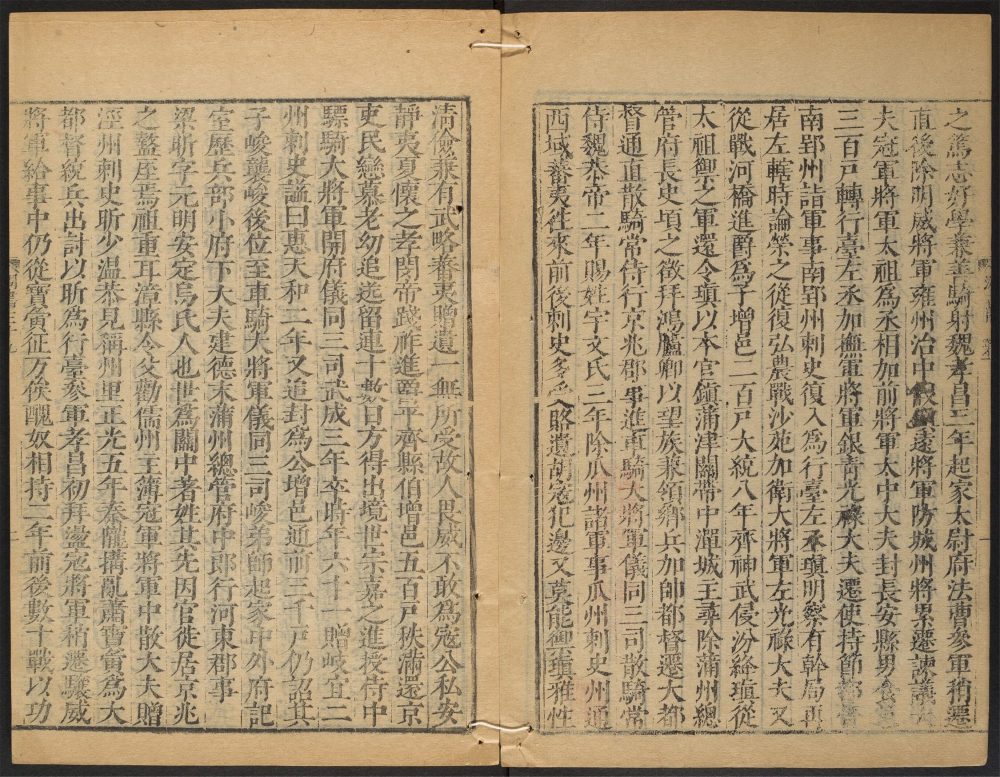 之篤志好學兼善騎射魏孝昌三年起家太尉府法曹參軍稍遷
直後除明威將軍雍州治中假鎮遠將軍防城州將累遷諫議大
夫冠軍將軍太祖爲丞相加前將軍太中大夫封長安縣男食邑
三百戸轉行臺左丞加撫軍將軍銀青光祿大夫遷使持節都督
南郢州諸軍事南郢州刺史復入爲行臺左丞瑱明察有幹局再
居左轄時論榮之從復弘農戰沙苑加衛大將軍左光祿大夫又
從戰河橋進爵爲子增邑二百戸大統八年齊神武侵汾絳瑱從
太祖禦之軍還令瑱以本官鎮蒲津關帶中潬城主尋除蒲州總
管府長史頃之徵拜鴻臚卿以望族兼領鄉兵加帥都督遷大都
督通直散騎常侍行京兆郡事進車騎大將軍儀同三司散騎常
侍魏恭帝二年賜姓宇文氏三年除瓜州諸軍事瓜州刺史州通
西域蕃夷往來前後刺史多受賂遺胡寇犯邊又莫能禦瑱雅性
清儉兼有武略蕃夷贈遺一無所受故人畏威不敢爲寇公私安
靜夷夏懷之孝閔帝踐祚進爵平齊縣伯增邑五百戸秩滿還京
吏民戀慕老幼追送留連十數日方得出境世宗嘉之進授侍中
驃騎大將軍開府儀同三司武成三年卒時年六十一贈岐宜二
州刺史謚曰惠天和二年又追封爲公增邑通前三千戸仍詔其
子峻襲峻後位至車騎大將軍儀同三司峻弟師起家中外府記
室歷兵部小府下大夫建德末蒲州總管府中郎行河東郡事
梁昕字元明安定烏氏人也世爲關中著姓其先因官徙居京兆
之盩厔焉祖重耳漳縣令父勸儒州主簿冠軍將軍中散大夫贈
涇州刺史昕少温恭見稱州里正光五年秦隴構亂蕭寶夤爲大
都督統兵出討以昕爲行臺參軍孝昌初拜盪寇將軍稍遷驤威
將軍給事中仍從寶夤征万俟醜奴相持二年前後數十戰以功